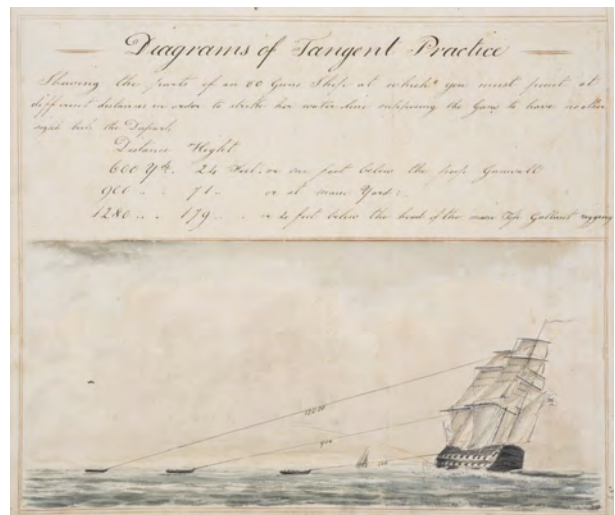 Diagrams of Tangent Practice
Shewing the parts of an 80 Guns Ship at which you must point at
different distances in order to strike her water line supposing the Guns to have no other
sight but the Dispart
Distance Hight
600 Yds. 24 Feet or one foot below the poop Gunwall
900 .. .. 71 .. or at main Yard :
1280 .. .. 179 .. .. or 4 feet below the head of the main Top Gallant rigging
900